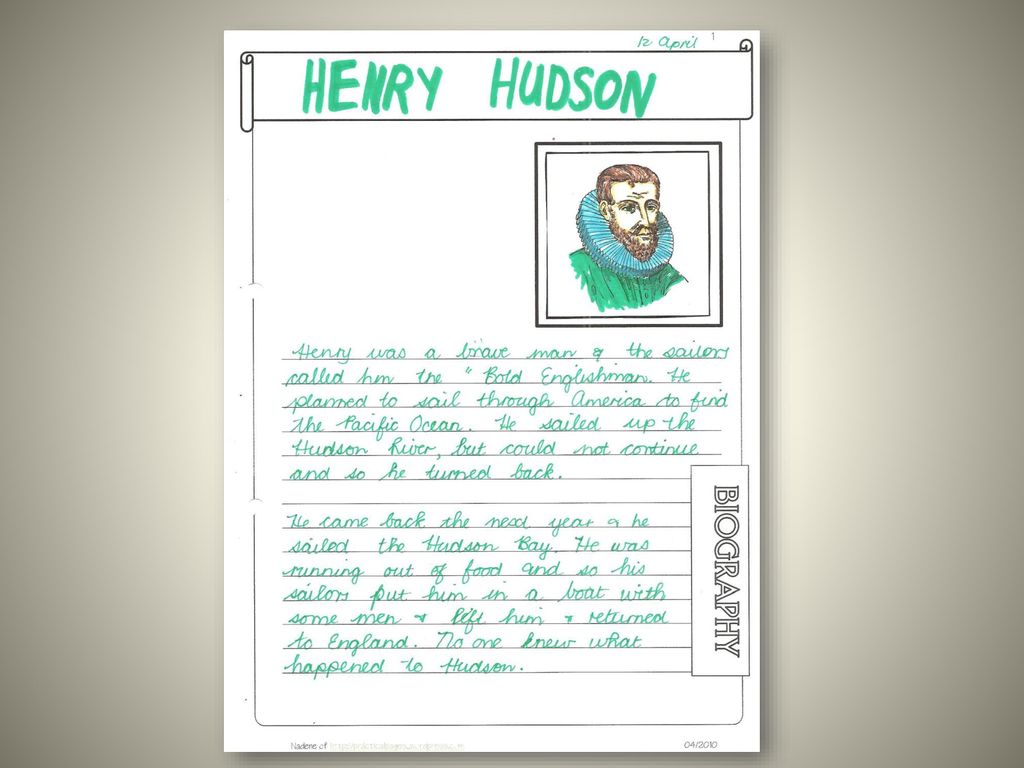 12 April 1
HENRY HUDSON
Henry was a brave man & the sailors
called him the " Bold Englishman. He
planned to sail through America to find
the Pacific Ocean. He sailed up the
Hudson River, but could not continue
and so he turned back.
He came back the next year & he
sailed the Hudson Bay. He was
running out of food and so his
sailors put him in a boat with
some men & left him & returned
to England. No one knew what
happened to Hudson.
BIOGRAPHY
Nadene of http://practicalpages.wordpress.com
04/2010